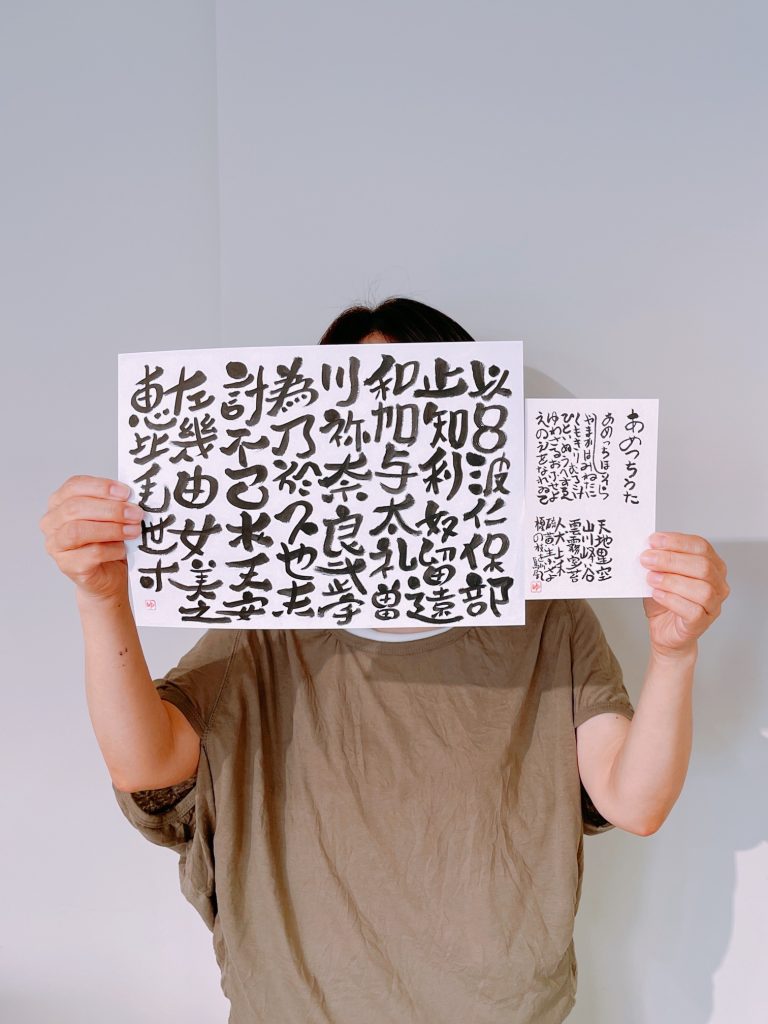 以呂波仁保部
止知利奴留遠
和加与太礼曽
川祢奈良武宇
為乃於久也末
計不己衣天安
左幾由女美之
恵比毛世寸
あめつちうた
あめつちほしそら
やまかはみねたに
くもきりむろこけ
ひといぬうへすゑ
ゆわさるおふせよ
えのえをなれゐて
天地星空
山川峰谷
雲霧室苔
人犬上末
ゆ